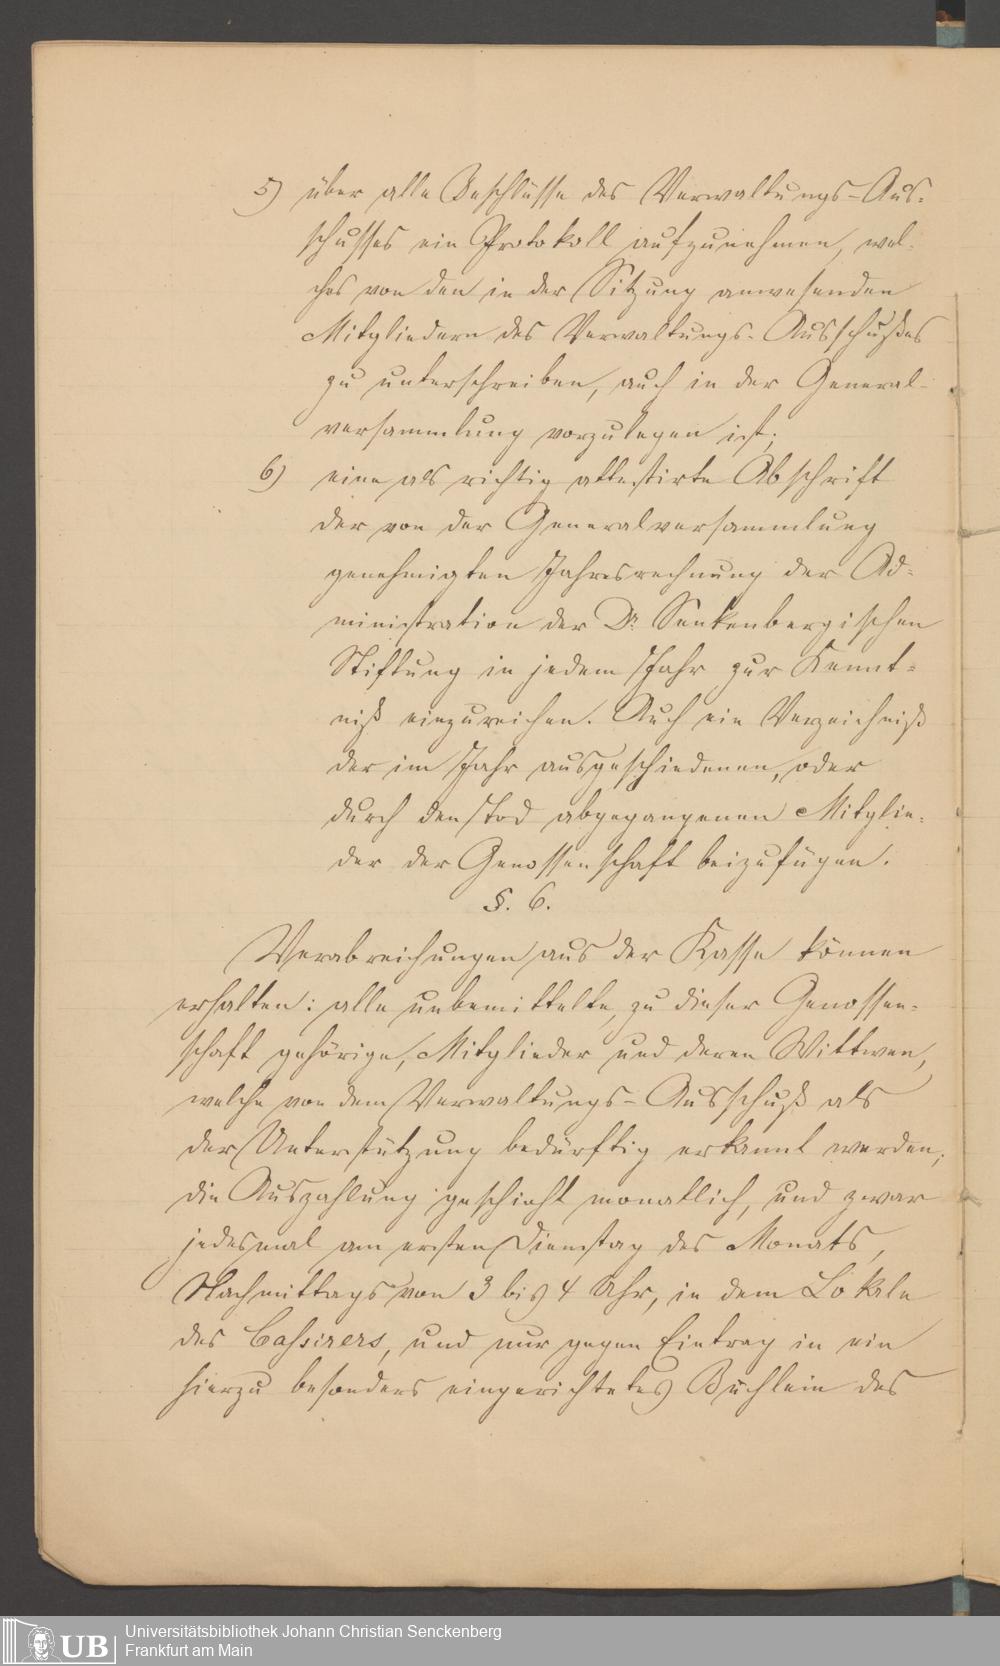 5) über alle Beschlüsse des Verwaltungs-Aus-
schusses ein Protokoll aufzunehmen, wel-
ches von den in der Sitzung anwesenden
Mitgliedern des Verwaltungs-Ausschußes
zu unterschreiben, auch in der General-
versammlung vorzulegen ist;
6) eine als richtig attestirte Abschrift
der von der Generalversammlung
genehmigten Jahresrechnung der Ad-
ministration der Dr. Senkenbergischen
Stiftung in jedem Jahr zur Kennt-
niß einzureichen. Auch ein Verzeichniß
der im Jahr ausgeschiedenen, oder
durch den Tod abgegangenen Mitglie-
der der Genossenschaft beizufügen.
§. 6.
Verabreichungen aus der Kasse können
erhalten: alle unbemittelte, zu dieser Genossen-
schaft gehörige, Mitglieder und deren Wittwen,
welche von dem Verwaltungs-Ausschuß als
der Unterstützung bedürftig erkannt werden;
die Auszahlung geschieht monatlich, und zwar
jedesmal am ersten Dienstag des Monats,
Nachmittags von 3 bis 4 Uhr, in dem Lokale
des Cassirers, und nur gegen Eintrag in ein
hierzu besonders eingerichtetes Büchlein des
UB
Universitätsbibliothek Johann Christian Senckenberg
Frankfurt am Main